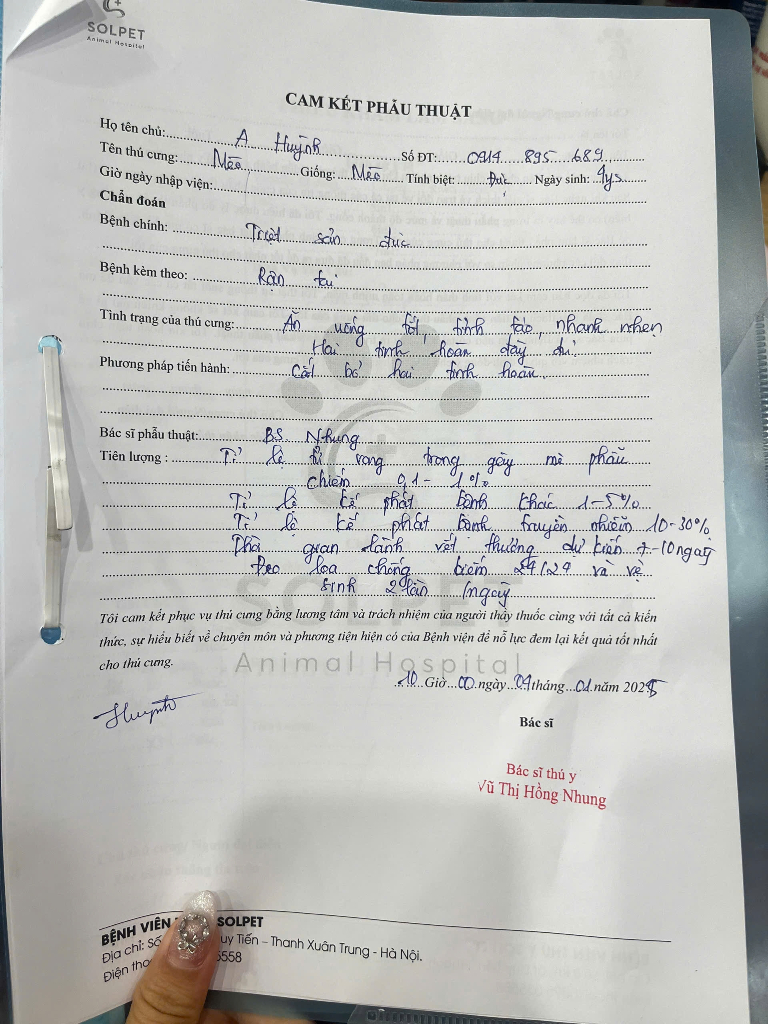 SOLPET
Animal Hospital
CAM KẾT PHẪU THUẬT
Họ tên chủ: A Huỳnh Số ĐT: 0914 895 689
Tên thú cưng: Mèo Giống: Mèo Tính biệt: Đực Ngày sinh: 4ys
Giờ ngày nhập viện:
Chẩn đoán
Bệnh chính: Triệt sản đực
Bệnh kèm theo: Rận tai
Tình trạng của thú cưng: Ăn uống tốt, tỉnh táo, nhanh nhẹn
Hai tinh hoàn đầy đủ
Phương pháp tiến hành: Cắt bỏ hai tinh hoàn
Bác sĩ phẫu thuật: BS Nhung
Tiên lượng : Tỉ lệ tử vong trong gây mê phẫu
chiếm 0,1 - 1%
Tỉ lệ kế phát bệnh khác 1-5%
Tỉ lệ kế phát bệnh truyền nhiễm 10-30%
Thời gian lành vết thương dự kiến 7-10 ngày
Đeo loa chống liếm 24/24 và vệ
sinh 2 lần /ngày
Tôi cam kết phục vụ thú cưng bằng lương tâm và trách nhiệm của người thầy thuốc cùng với tất cả kiến
thức, sự hiểu biết về chuyên môn và phương tiện hiện có của Bệnh viện để nỗ lực đem lại kết quả tốt nhất
cho thú cưng.
SOLPET
Animal Hospital
10 Giờ 00 ngày 04 tháng 01 năm 2025
Huỳnh
Bác sĩ
Bác sĩ thú y
Vũ Thị Hồng Nhung
BỆNH VIỆN SOLPET
Địa chỉ: Số uy Tiến – Thanh Xuân Trung - Hà Nội.
Điện tho 5558